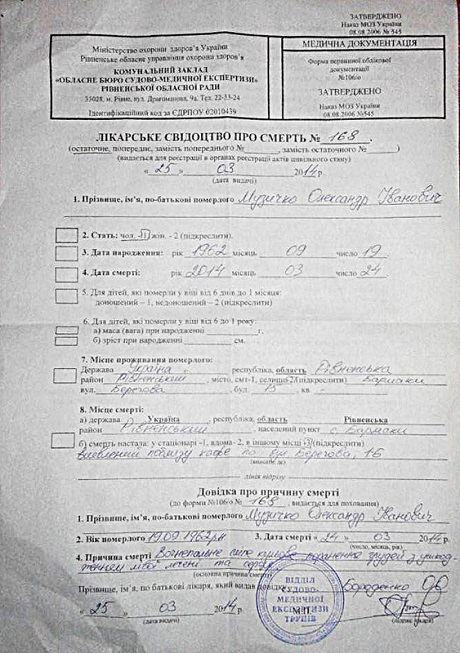 ЗАТВЕРДЖЕНО
Наказ МОЗ України
08.08.2006 № 545
Міністерство охорони здоров'я України
Рівненське обласне управління охорони здоров'я
КОМУНАЛЬНИЙ ЗАКЛАД
«ОБЛАСНЕ БЮРО СУДОВО-МЕДИЧНОЇ ЕКСПЕРТИЗИ»
РІВНЕНСЬКОЇ ОБЛАСНОЇ РАДИ
33028, м. Рівне, вул. Драгоманова, 9а. Тел. 22-33-24
Ідентифікаційний код за ЄДРПОУ 02010439
МЕДИЧНА ДОКУМЕНТАЦІЯ
Форма первинної облікової
документації
№106/о
ЗАТВЕРДЖЕНО
Наказ МОЗ України
08.08.2006 №545
ЛІКАРСЬКЕ СВІДОЦТВО ПРО СМЕРТЬ № 168.
(остаточне, попереднє, замість попереднього № , замість остаточного № )
(видається для реєстрації в органах реєстрації актів цивільного стану)
« 25 » 03 2014 р.
(дата видачі)
1. Прізвище, ім'я, по-батькові померлого Музичко Олександр Іванович
2. Стать: чол. -1, жін. - 2 (підкреслити).
3. Дата народження: рік 1962 місяць 09 число 19
4. Дата смерті: рік 2014 місяць 03 число 24
5. Для дітей, які померли у віці від 6 днів до 1 місяця:
доношений – 1, недоношений – 2 (підкреслити)
6. Для дітей, які померли у віці від 6 до 1 року:
а) маса (вага) при народженні г.
б) зріст при народженні см.
7. Місце проживання померлого:
Держава Україна республіка, область Рівненська
район Рівненський, місто, смт-1, селище-2 (підкреслити) Бармаки
вул. Берегова, буд. 15 кв. -
8. Місце смерті:
а) держава Україна республіка, область Рівненська
район Рівненський, населений пункт с. Бармаки
б) смерть настала: у стаціонарі -1, вдома-2, в іншому місці -3 (підкреслити)
виявлений поблизу кафе по вул Берегова 16
(вказати де)
лінія відрізу
Довідка про причину смерті
(до форми №106/о № 168, видається для поховання)
1. Прізвище, ім'я, по-батькові померлого Музичко Олександр Іванович
2. Вік померлого 19.09.1962 рн 3. Дата смерті « 24 » 03 2014 р.
(число, місяць, рік)
4. Причина смерті Вогнепальне поранення грудей з ушкод-
женням легені та серця
(основна причина смерті)
Прізвище, ім'я, по-батькові лікаря, який видав довідку
« 25 » 03 2014 р.
(дата видачі)
(підпис лікаря)
ВІДДІЛ
СУДОВО-
МЕДИЧНОЇ
ЕКСПЕРТИЗИ
ТРУПІВ
М.П.